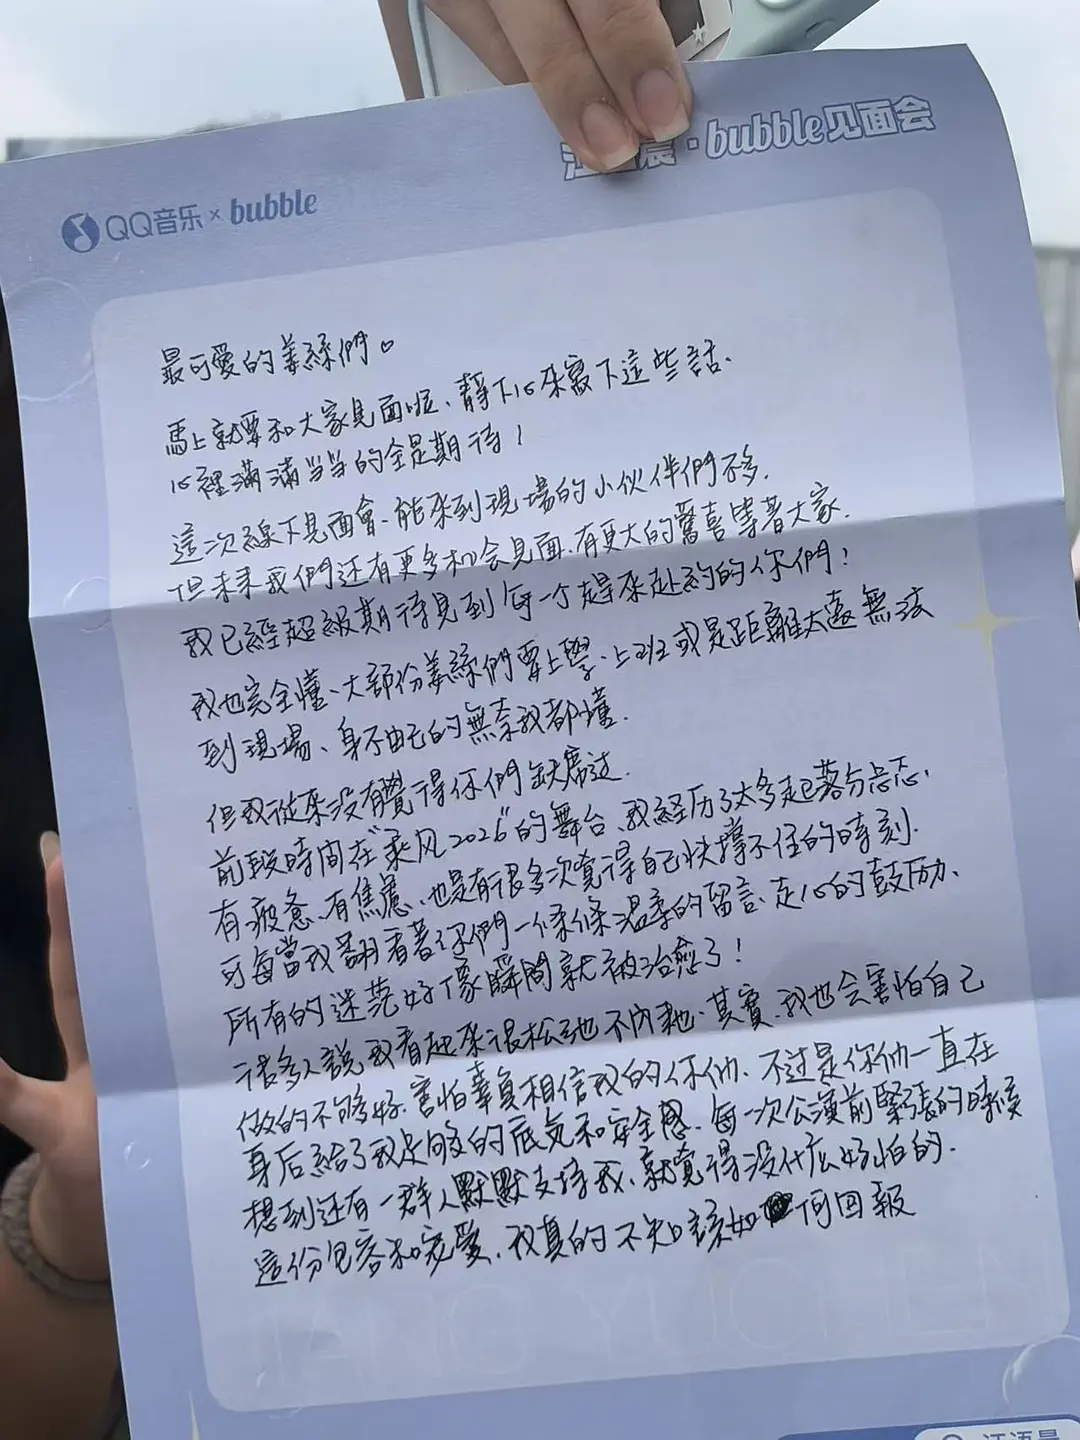 江语晨·bubble见面会
QQ音乐×bubble
最可愛的姜絲們♡
馬上就要和大家見面啦、靜下心來寫下這些話、
心裡滿滿当当的全是期待！
這次線下見面會、能來到現場的小伙伴們不多.
但未来我們還有更多机会見面、有更大的驚喜等著大家.
我已經超級期待見到每一个趕來赴約的你們！
我也完全懂、大部份姜絲們要上學、上班或是距離太遠無法
到現場、身不由己的無奈我都懂.
但我從來没有覺得你們缺席过.
前段時間在“乘风2026”的舞台、我経历了太多起落与忐忑、
有疲惫、有焦慮、也是有很多次覚得自己快撐不住的時刻.
可每當我翻看著你們一條條温柔的留言、走心的鼓历、
所有的迷茫好像瞬間就被治愈了！
很多人説我看起來很松弛不内耗、其實、我也会害怕自己
做的不够好、害怕辜負相信我的你们、不过是你们一直在
身后給了我足够的底気和安全感、每一次公演前緊張的時候
想到还有一群人默默支持我、就覚得没什么好怕的.
這份包容和宠愛、我真的不知該如何回報
JIANG YUCHEN
江语晨